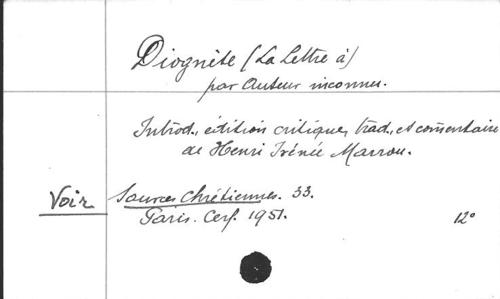 Diognète (La Lettre à)
par Auteur inconnu.
Introd., édition critique, trad., et commentaire
de Henri Irénée Marrou.
Voir Sources Chrétiennes. 33.
Paris. Cerf. 1951. 12°